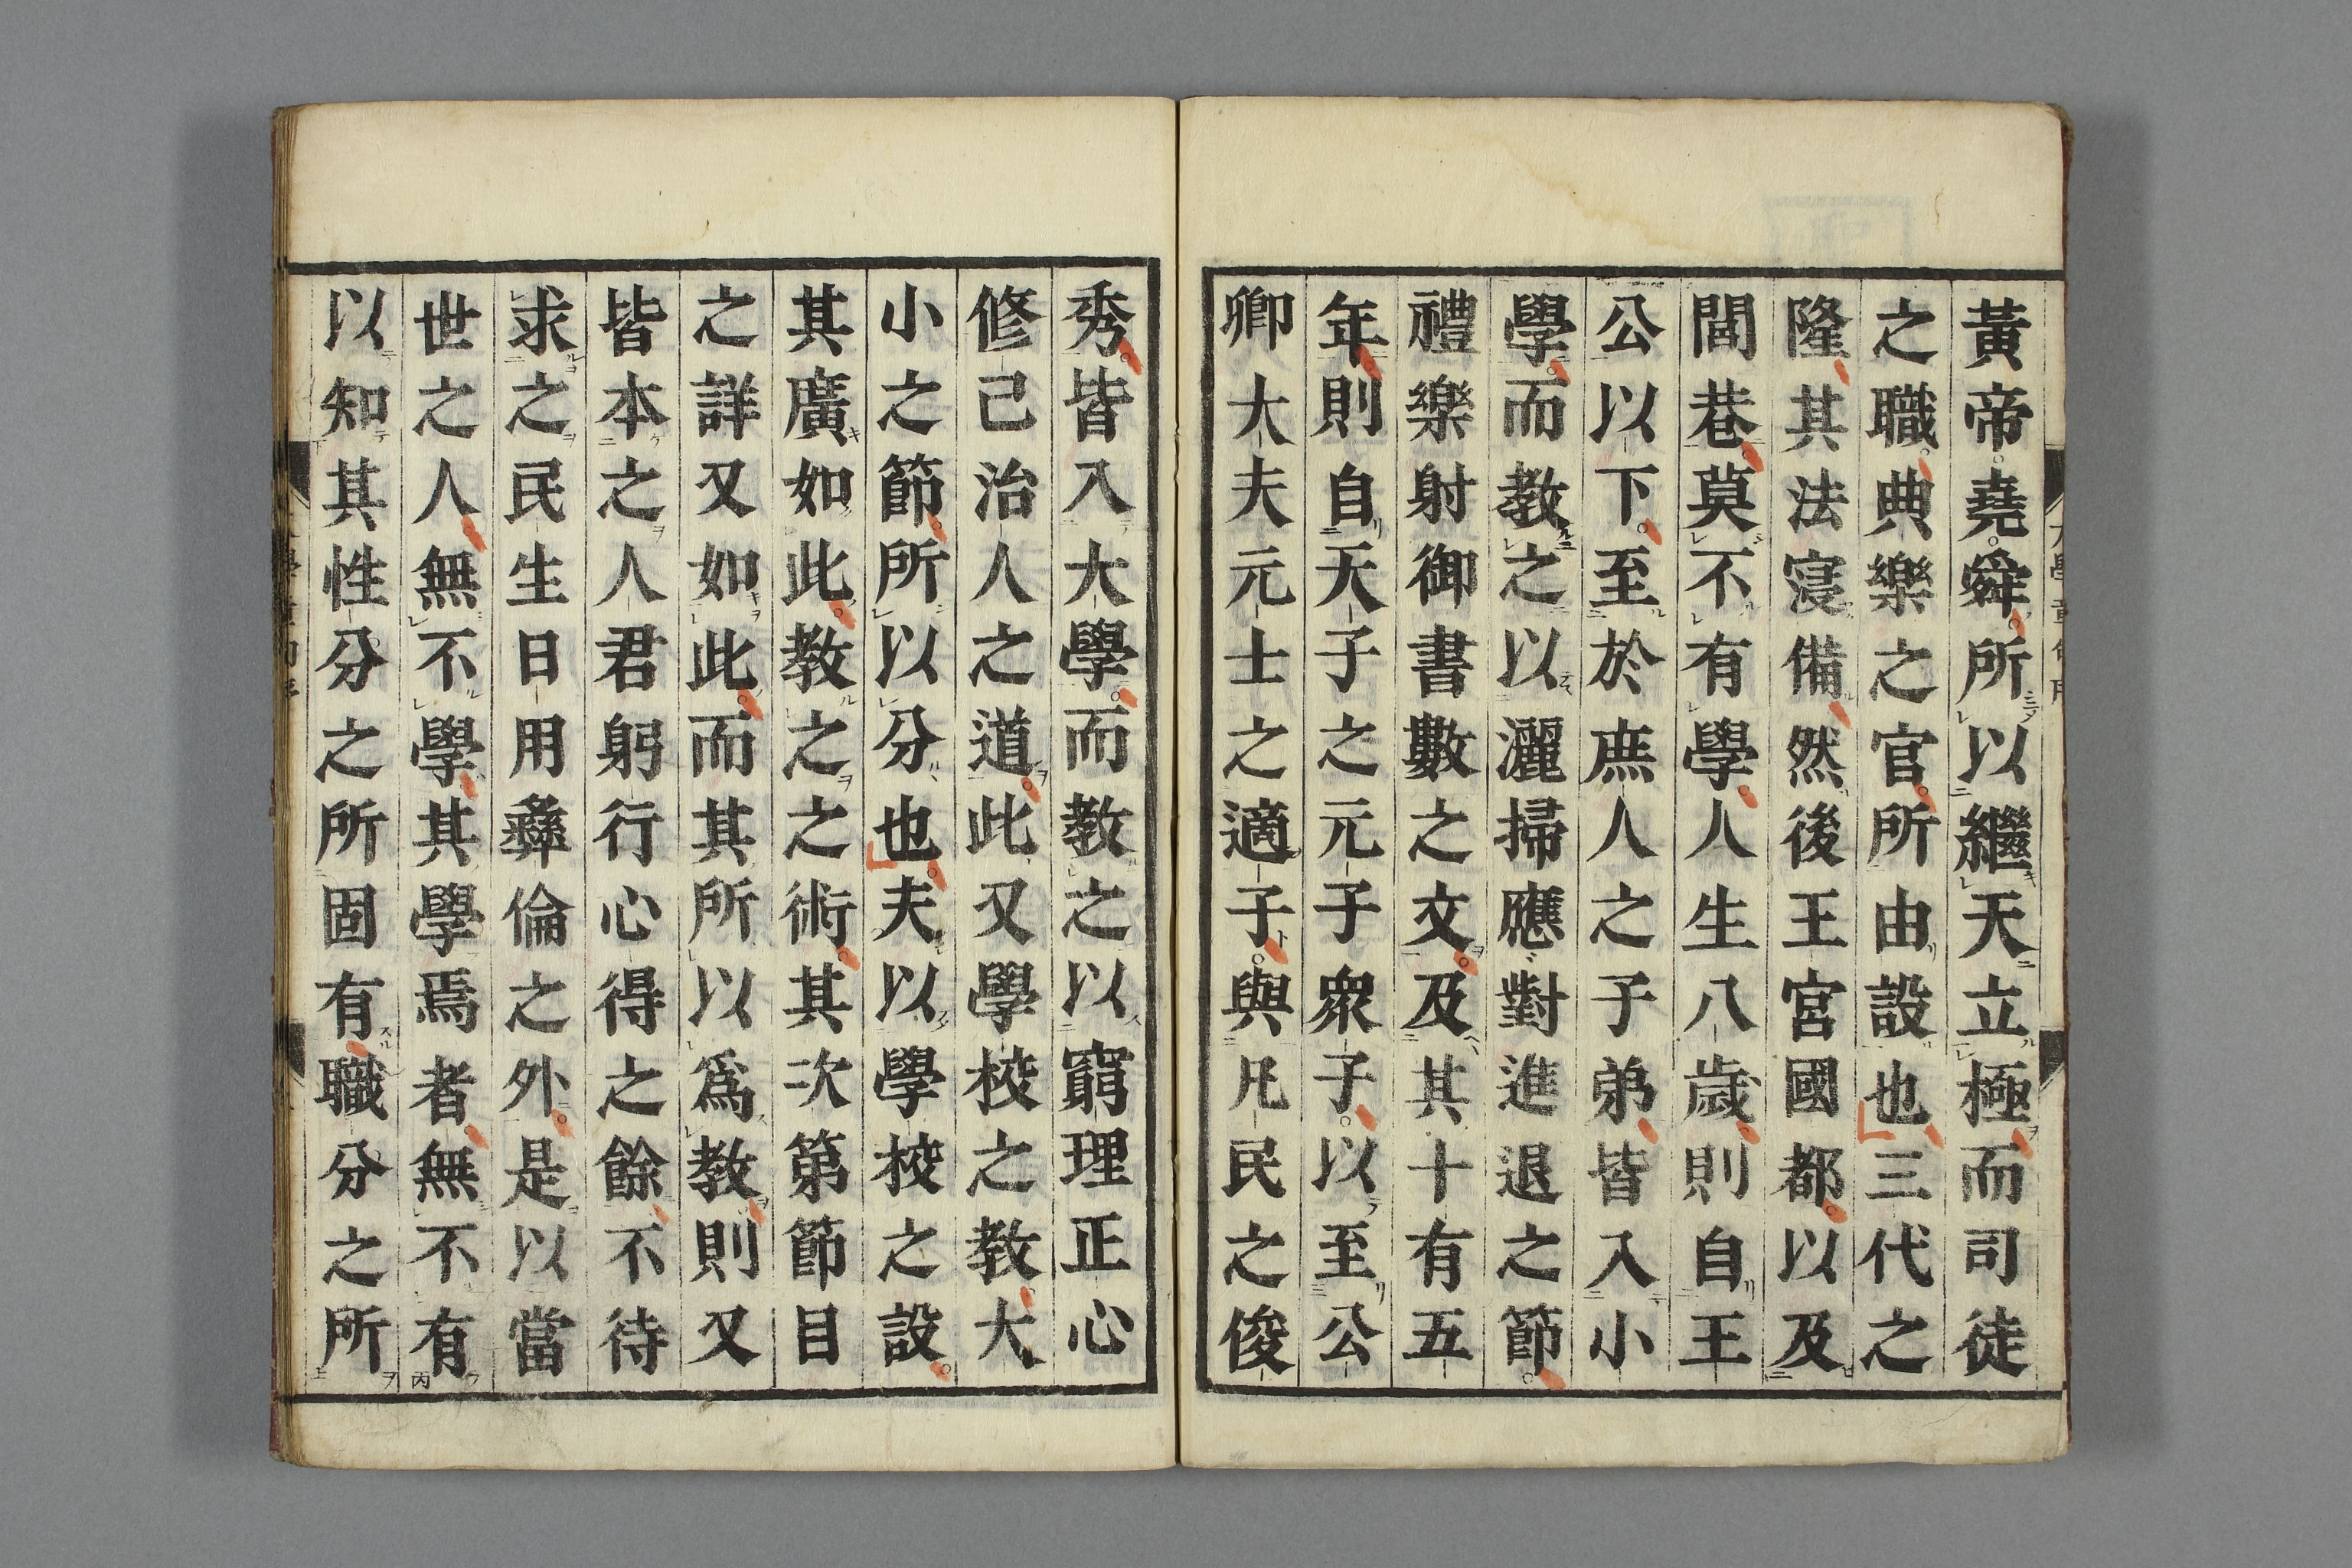 黃帝堯舜所以繼天立極而司徒
之職典樂之官所由設也三代之
隆其法寖備然後王宮國都以及
閭巷莫不有學人生八歲則自王
公以下至於庶人之子弟皆入小
學而教之以灑掃應對進退之節
禮樂射御書數之文及其十有五
年則自天子之元子衆子以至公
卿大夫元士之適子與凡民之俊
秀皆入大學而教之以窮理正心
修己治人之道此又學校之教大
小之節所以分也夫以學校之設
其廣如此教之之術其次第節目
之詳又如此而其所以爲教則又
皆本之人君躬行心得之餘不待
求之民生日用彞倫之外是以當
世之人無不學其學焉者無不有
以知其性分之所固有職分之所